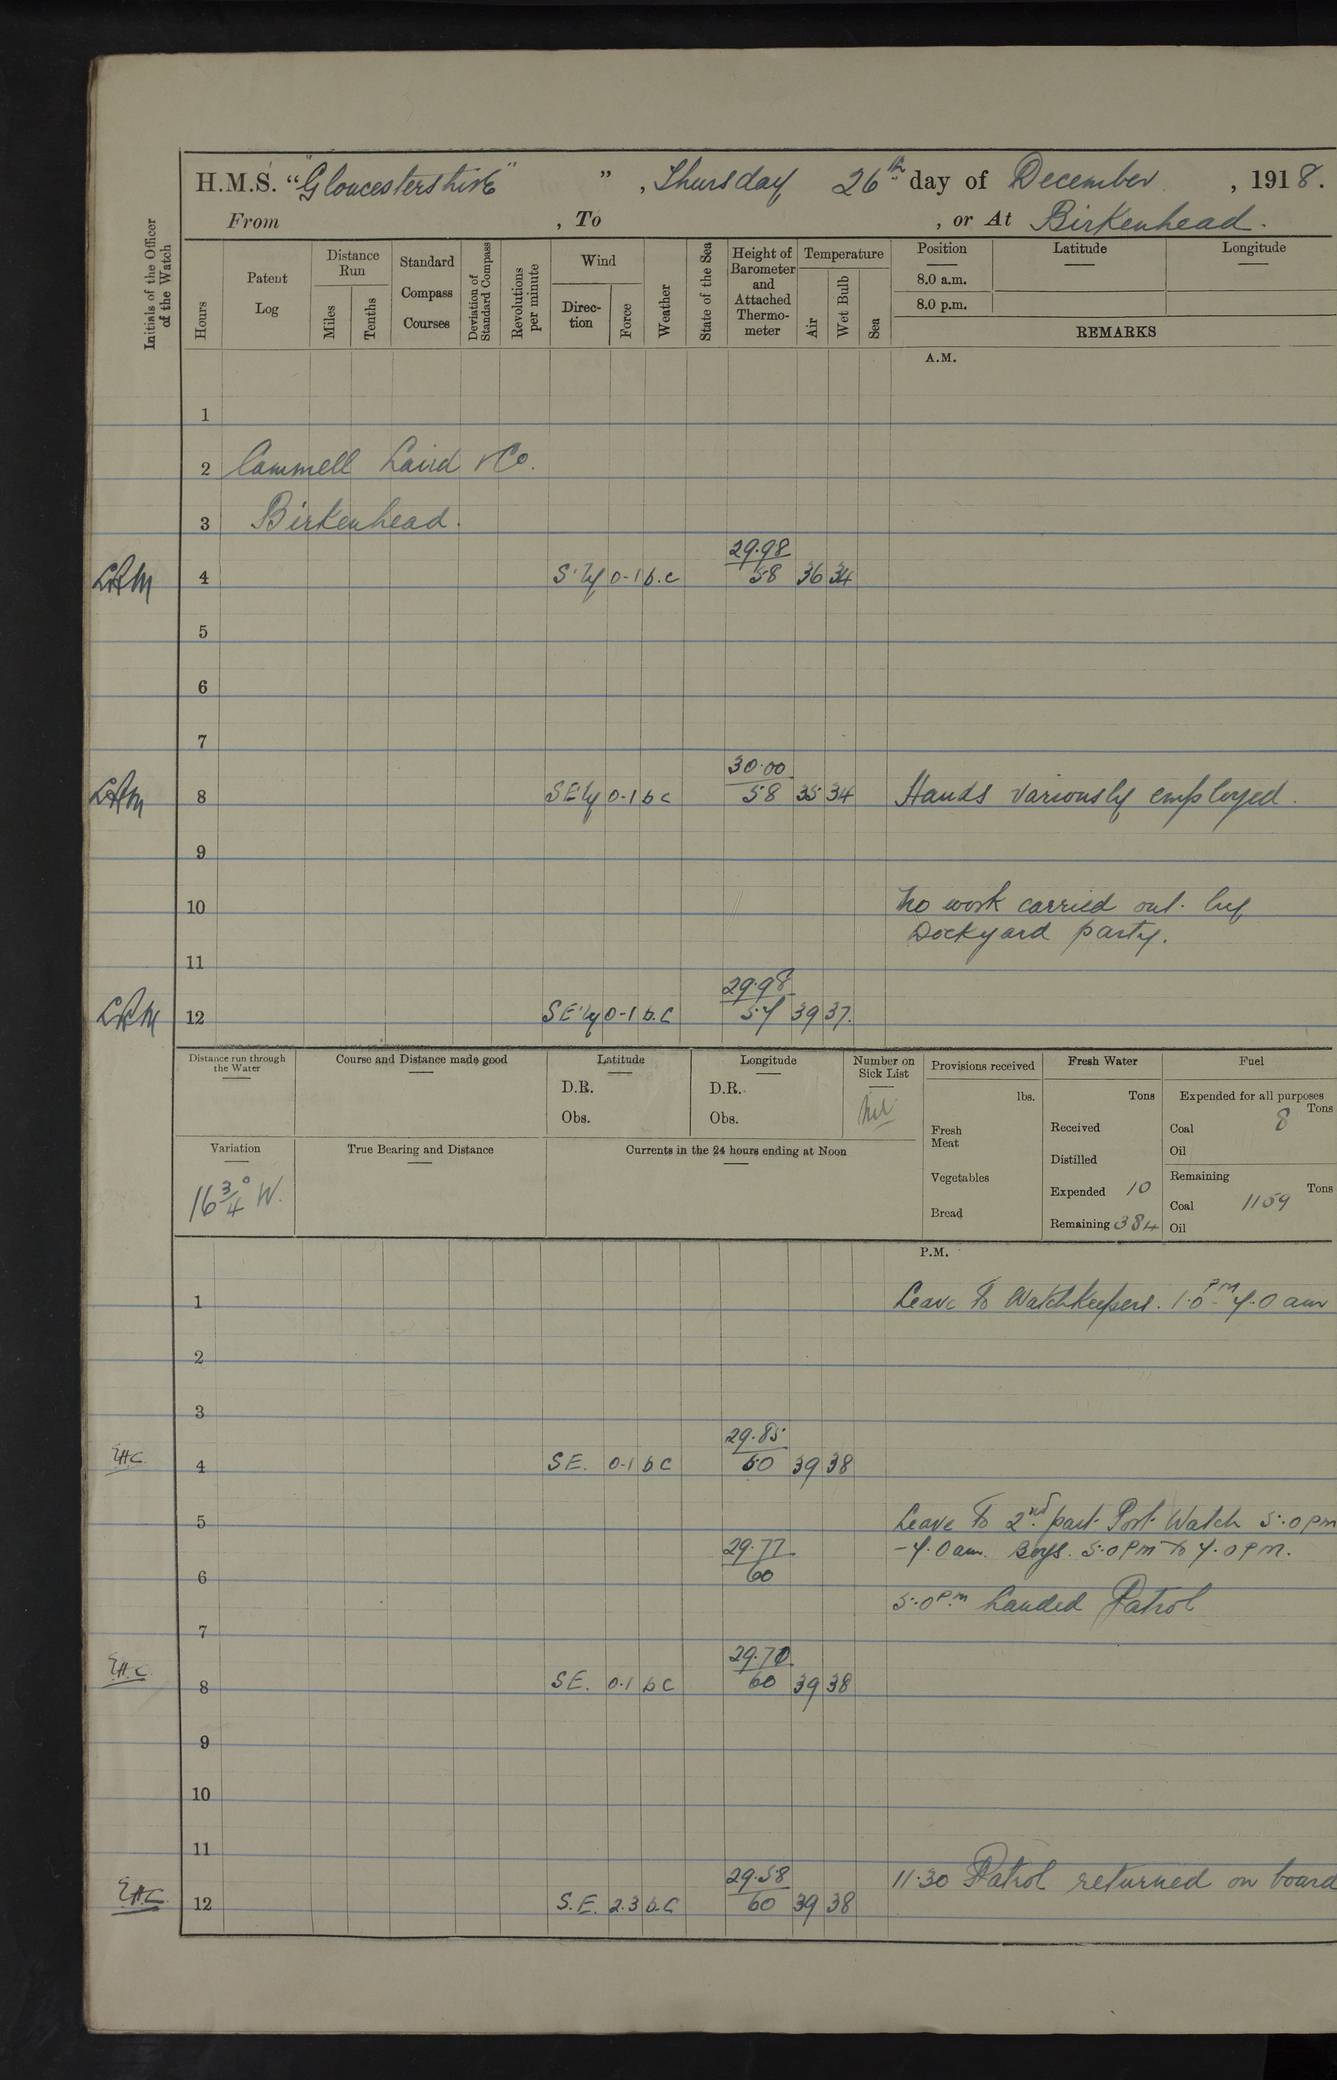 H.M.S. "Gloucestershire" ", Thursday 26th day of December, 1918.
From , To , or At Birkenhead.
Initials of the Officer of the Watch
Hours
Patent Log
Distance Run
Miles
Tenths
Standard Compass Courses
Deviation of Standard Compass
Revolutions per minute
Wind
Direc-tion
Force
Weather
State of the Sea
Height of Barometer and Attached Thermo-meter
Temperature
Air
Wet Bulb
Sea
Position
Latitude
Longitude
8.0 a.m.
8.0 p.m.
REMARKS
A.M.
1
2 Cammell Laird & Co.
3 Birkenhead.
29.98
4 S'ly 0-1 b.c 58 36 34
5
6
7
30.00
8 SE'ly 0-1 b c 58 35 34 Hands variously employed.
9
10 No work carried out by
Dockyard party.
11
29.98
12 SE'ly 0-1 b.c 57 39 37.
Distance run through the Water
Course and Distance made good
Latitude
D.R.
Obs.
Longitude
D.R.
Obs.
Number on Sick List
Nil
Provisions received
lbs.
Fresh Meat
Vegetables
Bread
Fresh Water
Tons
Received
Distilled
Expended 10
Remaining 384
Fuel
Expended for all purposes
Tons
Coal 8
Oil
Remaining
Tons
Coal 1159
Oil
Variation
16 3/4° W.
True Bearing and Distance
Currents in the 24 hours ending at Noon
P.M.
1 Leave to Watchkeepers. 1.0 pm - 7.0 am
2
3
29.85
EHC 4 SE. 0-1 b c 60 39 38
5 Leave to 2nd part Port Watch 5.0 pm
29.77 -7.0 am. Boys. 5.0 pm to 7.0 pm.
6 60
5.0 pm Landed Patrol
7
29.70
E.H.C. 8 SE. 0.1 b c 60 39 38
9
10
11
29.58 11.30 Patrol returned on board
EHC 12 S.E. 2.3 b.c 60 39 38